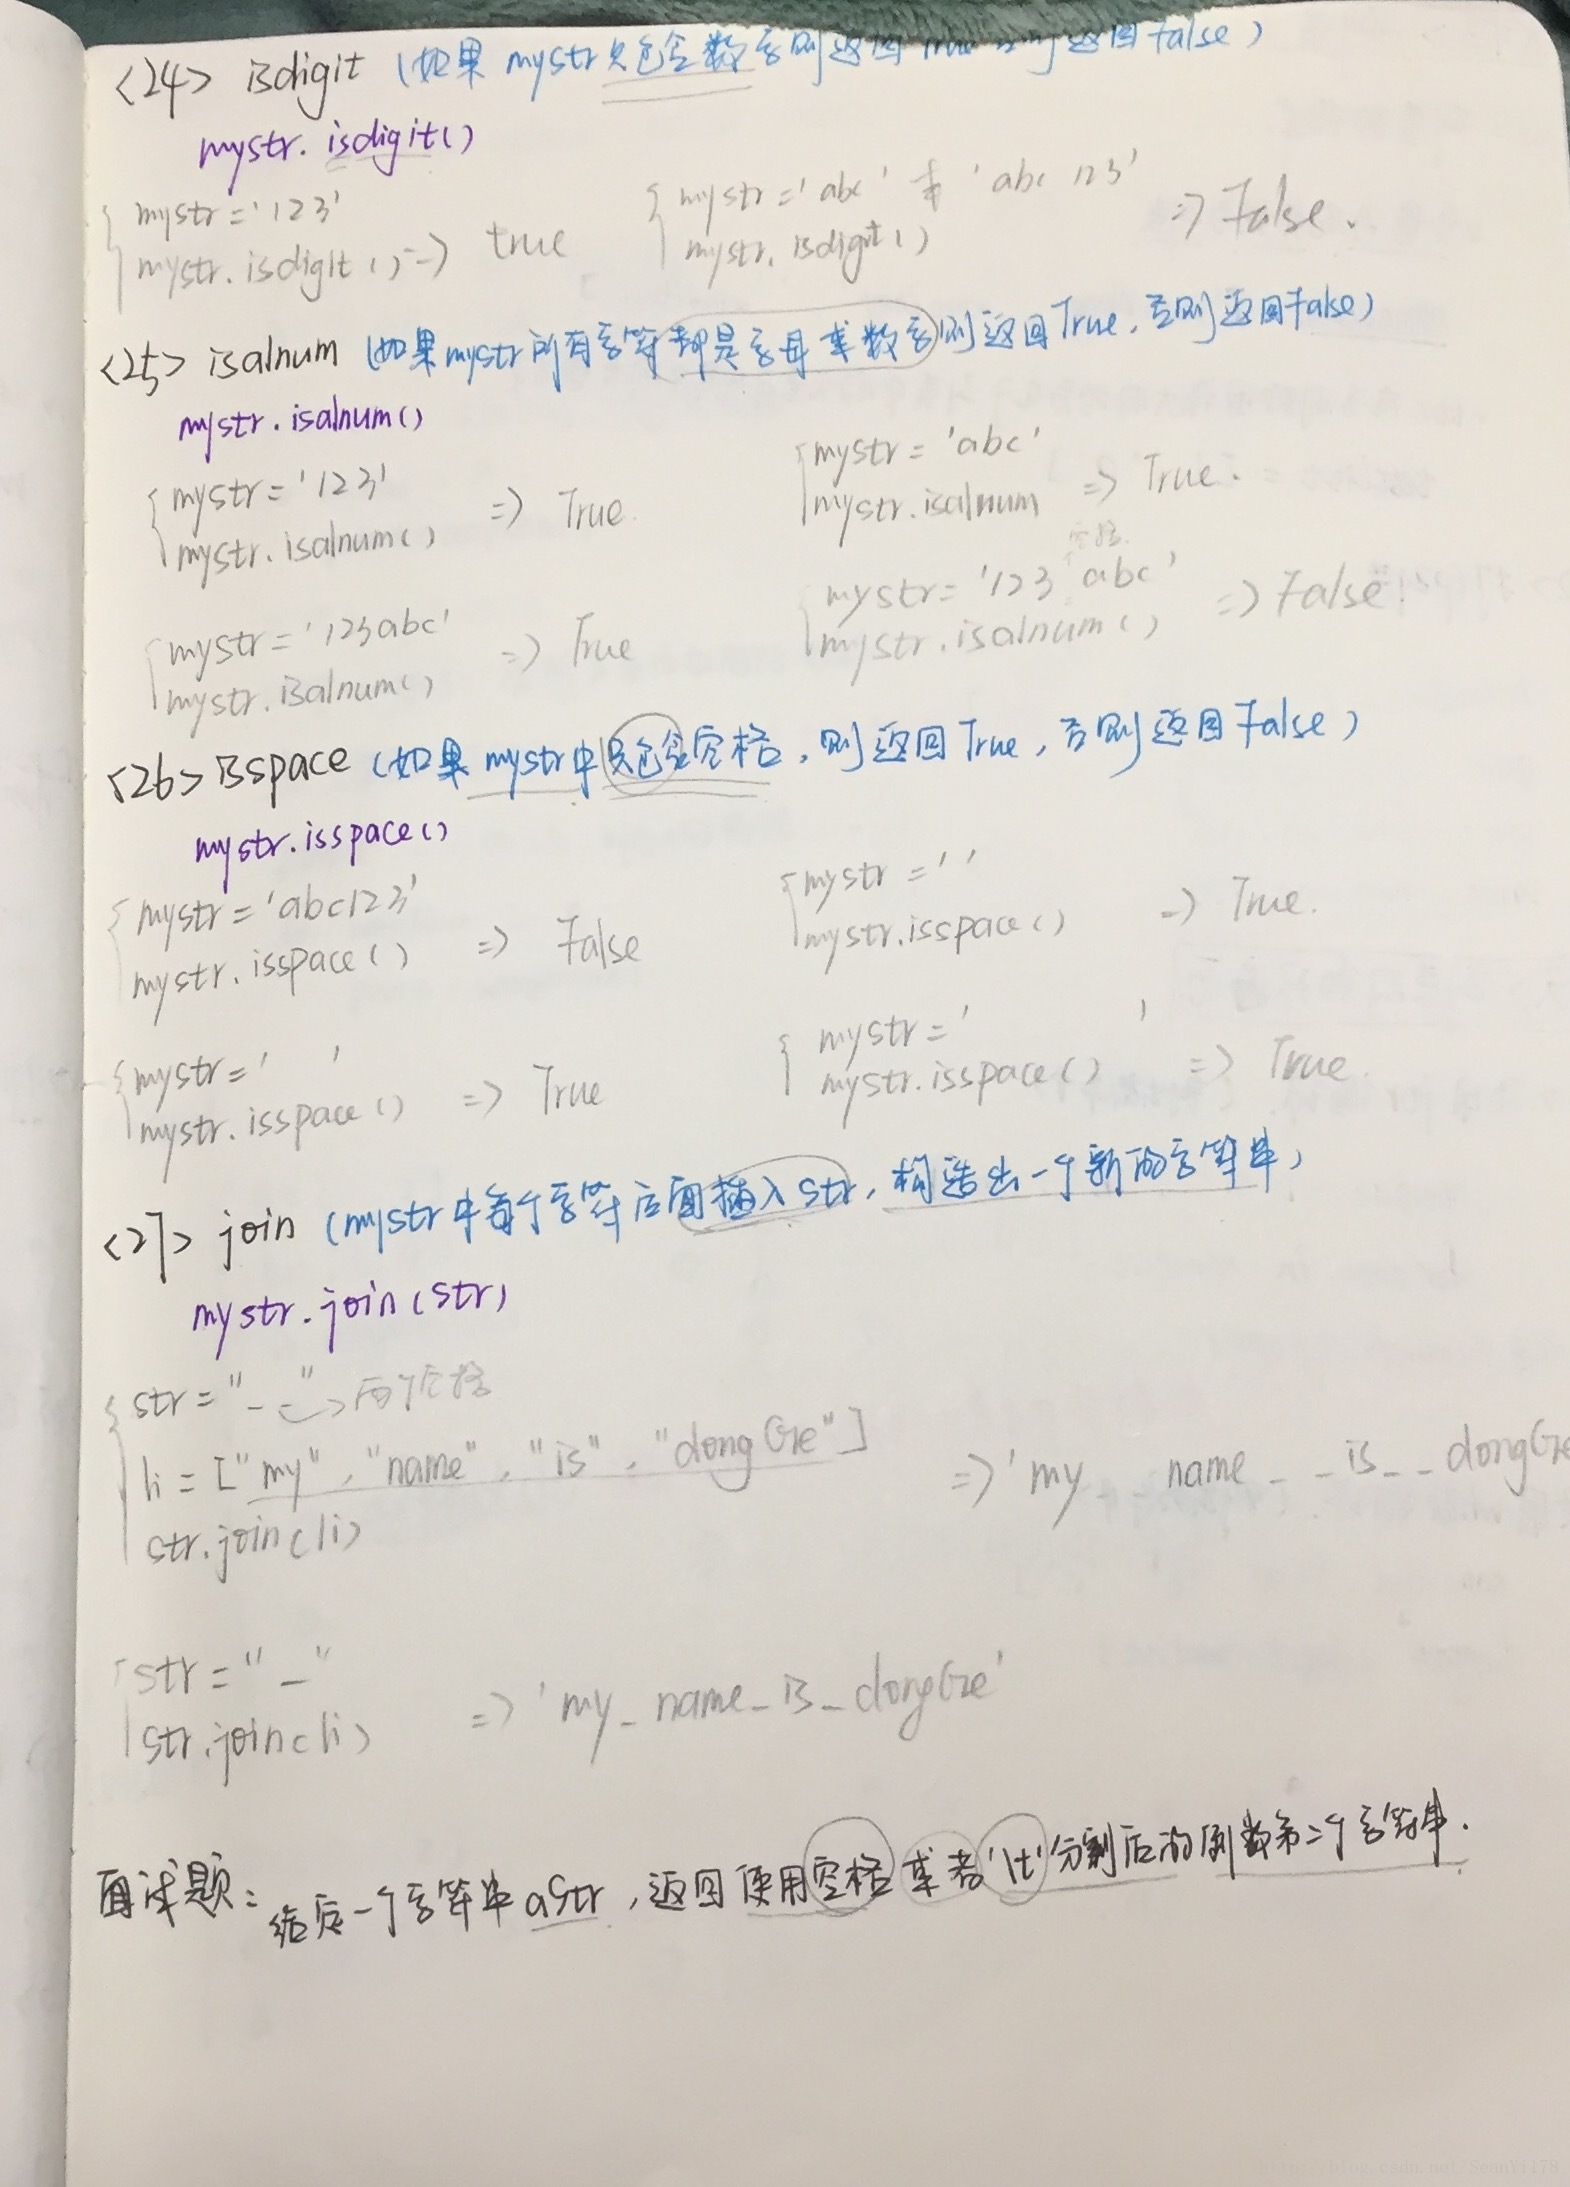 <24> isdigit (如果 mystr 只包含数字则返回 True 否则返回 False)
mystr.isdigit()
mystr='123'
mystr.isdigit() => true
mystr='abc' 或 'abc 123'
mystr.isdigit() => False.
<25> isalnum (如果mystr所有字符都是字母或数字则返回True,否则返回False)
mystr.isalnum()
mystr='123'
mystr.isalnum() => True.
mystr='abc'
mystr.isalnum => True.
空格
mystr='123abc'
mystr.isalnum() => True
mystr='123 abc'
mystr.isalnum() => False
<26> isspace (如果 mystr中只包含空格,则返回True,否则返回False)
mystr.isspace()
mystr='abc123'
mystr.isspace() => False
mystr=' '
mystr.isspace() => True.
mystr=' '
mystr.isspace() => True
mystr=' '
mystr.isspace() => True.
<27> join (mystr中每个字符后面插入str,构造出一个新的字符串)
mystr.join(str)
str="_ _" → 两个空格
li=["my","name","is","dongGe"] => 'my_ _name_ _is_ _dongGe
str.join(li)
str="_"
str.join(li) => 'my_name_is_dongGe'
面试题: 给定一个字符串aStr,返回使用空格或者'\t'分割后的倒数第二个字符串.
http://blog.csdn.net/SeanYi178